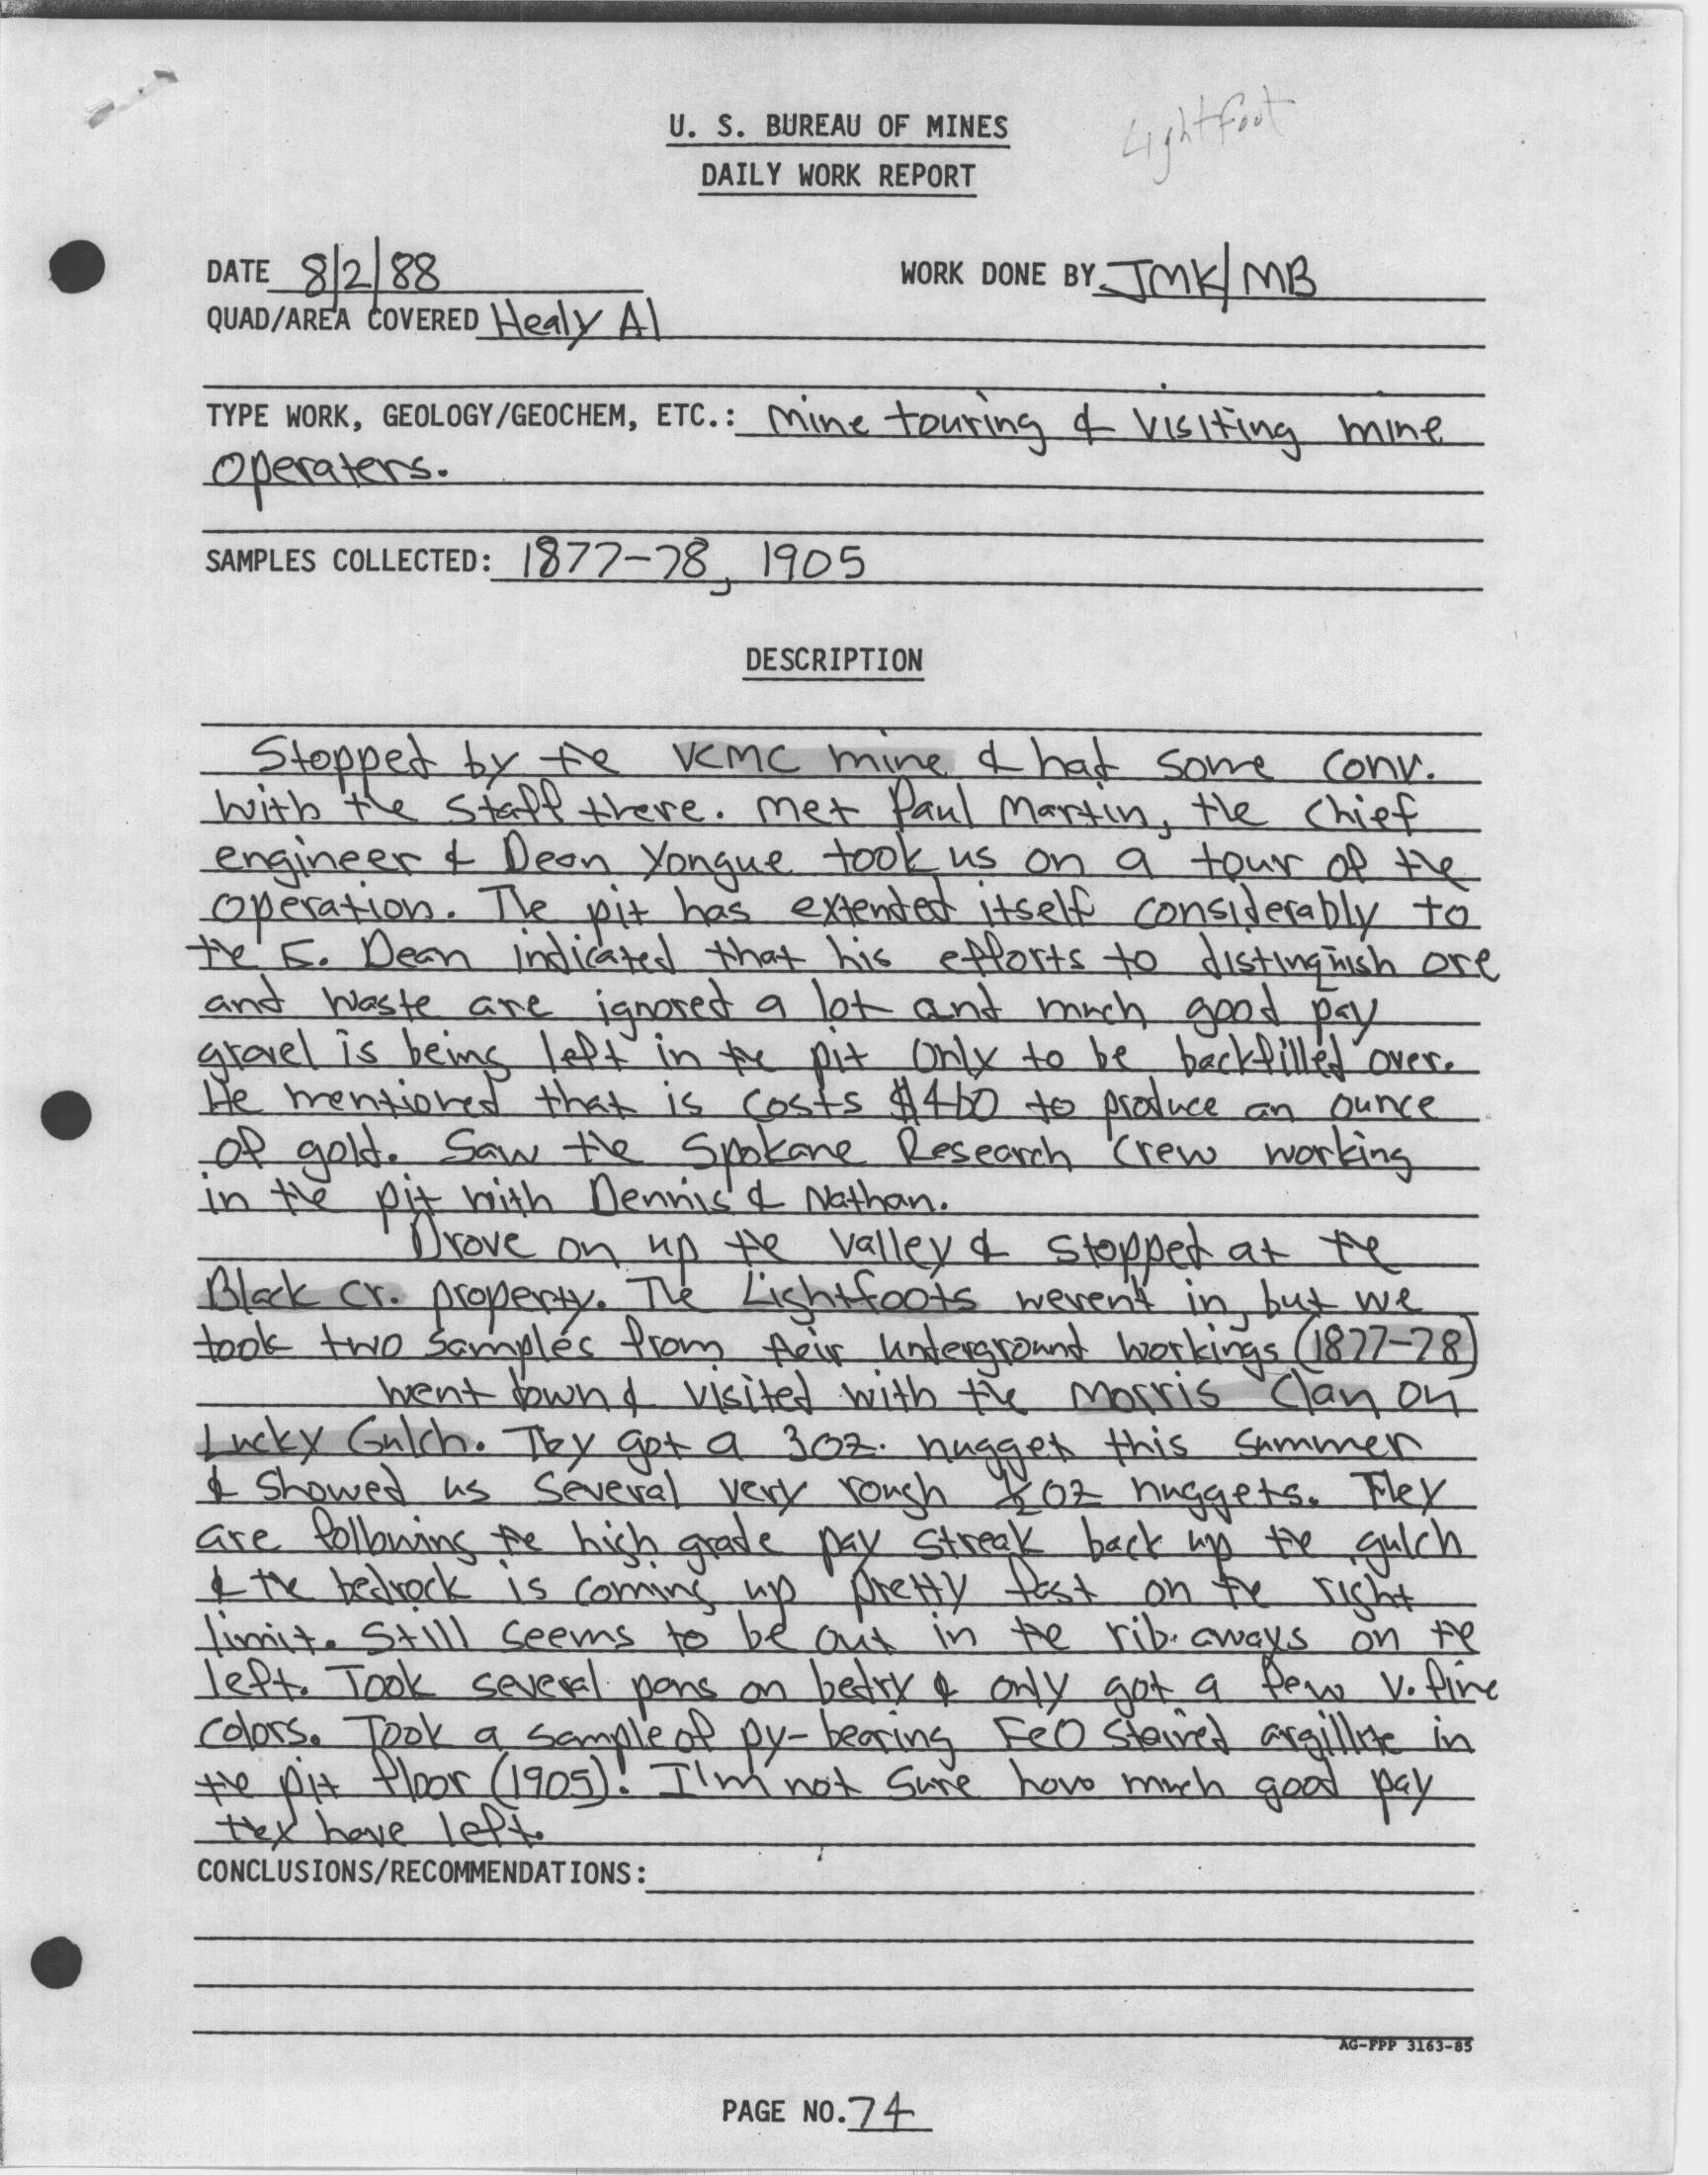 Lightfoot
U. S. BUREAU OF MINES
DAILY WORK REPORT
DATE 8/2/88 WORK DONE BY JMK/MB
QUAD/AREA COVERED Healy A1
TYPE WORK, GEOLOGY/GEOCHEM, ETC.: Mine touring & visiting mine
operaters.
SAMPLES COLLECTED: 1877-78, 1905
DESCRIPTION
Stopped by the VCMC mine & had some conv.
with the staff there. Met Paul Martin, the chief
engineer & Dean Yongue took us on a tour of the
operation. The pit has extended itself considerably to
the E. Dean indicated that his efforts to distinguish ore
and waste are ignored a lot and much good pay
gravel is being left in the pit only to be backfilled over.
He mentioned that is costs $460 to produce an ounce
of gold. Saw the Spokane Research Crew working
in the pit with Dennis & Nathan.
Drove on up the valley & stopped at the
Black Cr. property. The Lightfoots weren't in, but we
took two samples from their underground workings (1877-78)
Went down & visited with the Morris Clan on
Lucky Gulch. They got a 3 oz. nugget this summer
& showed us several very rough ½ oz nuggets. They
are following the high grade pay streak back up the gulch
& the bedrock is coming up pretty fast on the right
limit. Still seems to be out in the rib aways on the
left. Took several pans on bedrx & only got a few v. fine
colors. Took a sample of py-bearing FeO stained argillite in
the pit floor (1905). I'm not sure how much good pay
they have left.
CONCLUSIONS/RECOMMENDATIONS:
AG-FPP 3163-85
PAGE NO. 74